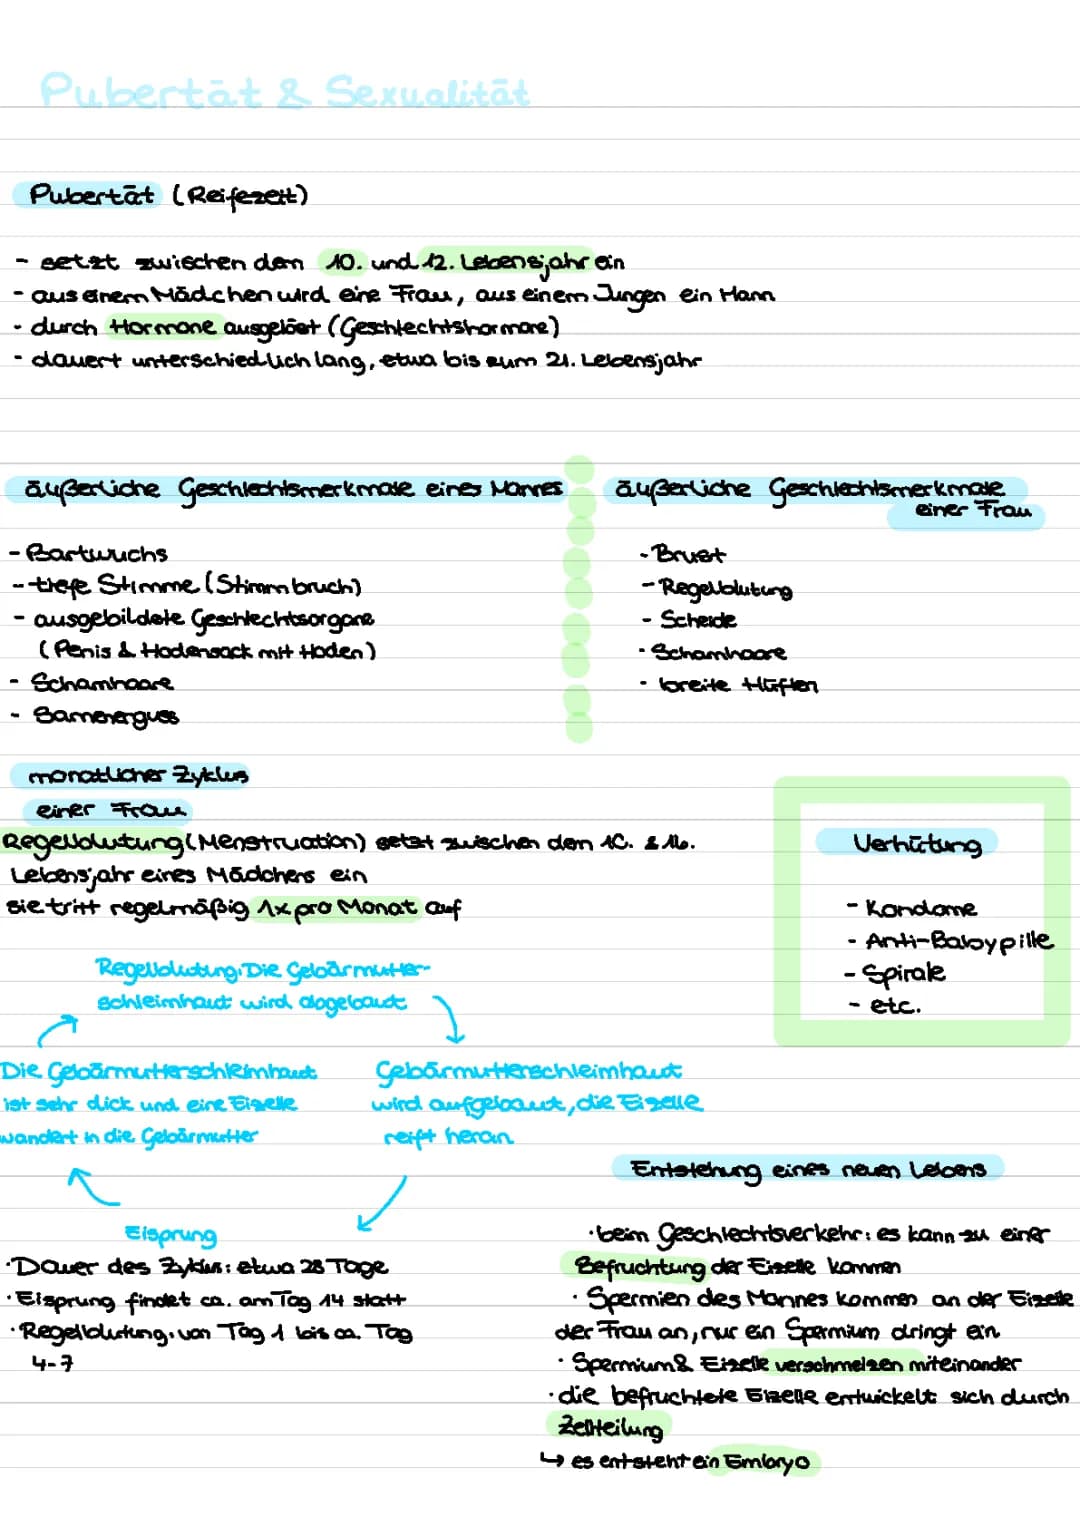 Pubertät & Sexualität
Pubertät (Reifezeit)
- setzt zwischen dem 10. und 12. Lebensjahr ein
- aus einem Mädchen wird eine Frau, aus einem Jungen ein Mann
- durch Hormone ausgelöst (Geschlechtshormone)
- dauert unterschiedlich lang, etwa bis zum 21. Lebensjahr
äußerliche Geschlechtsmerkmale eines Mannes
- Bartwuchs
- tiefe Stimme (Stimmbruch)
- ausgebildete Geschlechtsorgane
(Penis & Hodensack mit Hoden)
- Schamhaare
- Samenerguss
äußerliche Geschlechtsmerkmale
einer Frau
- Brust
- Regelblutung
- Scheide
- Schamhaare
- breite Hüften
monatlicher Zyklus
einer Frau
Regelblutung (Menstruation) setzt zwischen dem 10. & 16.
Lebensjahr eines Mädchens ein
sie tritt regelmäßig 1x pro Monat auf
Verhütung
- Kondome
- Anti-Babypille
- Spirale
- etc.
Regelblutung: Die Gebärmutter-
schleimhaut wird abgebaut
Gebärmutterschleimhaut
wird aufgebaut, die Eizelle
reift heran
Eisprung
Die Gebärmutterschleimhaut
ist sehr dick und eine Eizelle
wandert in die Gebärmutter
· Dauer des Zyklus: etwa 28 Tage
· Eisprung findet ca. am Tag 14 statt
· Regelblutung: von Tag 1 bis ca. Tag
4-7
Entstehung eines neuen Lebens
· beim Geschlechtsverkehr: es kann zu einer
Befruchtung der Eizelle kommen
· Spermien des Mannes kommen an der Eizelle
der Frau an, nur ein Spermium dringt ein
· Spermium & Eizelle verschmelzen miteinander
· die befruchtete Eizelle entwickelt sich durch
Zellteilung
↳ es entsteht ein Embryo